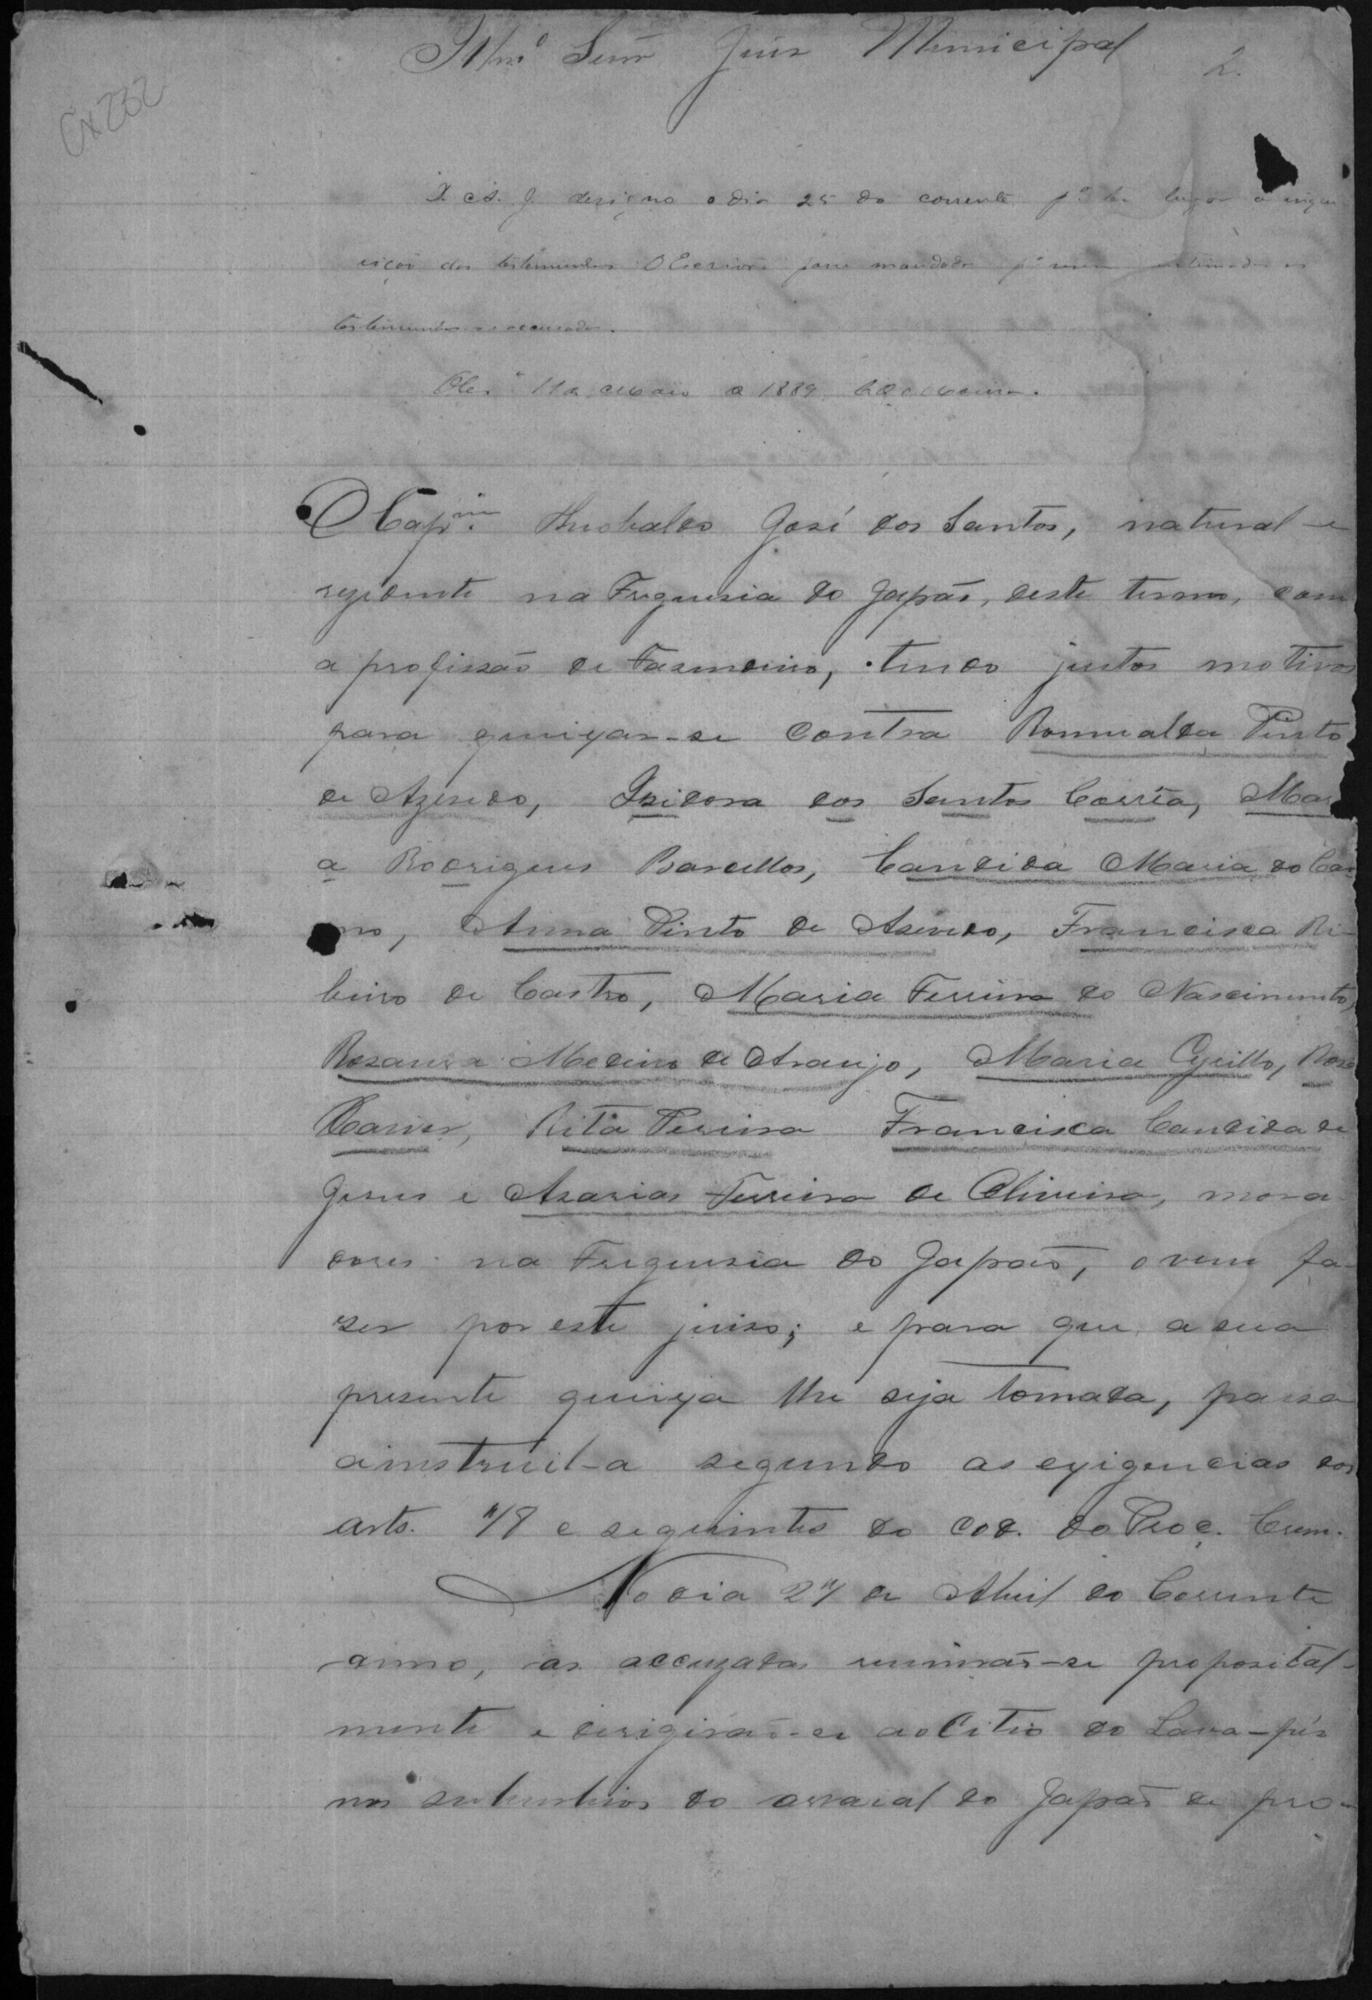 Illmo Senr Juis Municipal
2.
Cx 232
D. e A. J. designo o dia 25 do corrente pa ter lugar a inqui
rição das testemunhas O Escrivão passe mandado pa serem intimadas as
testemunhas e accusados.
Olivra 11 de Maio de 1889
O Capm Theobaldo José dos Santos, natural e
rezidente na Freguesia do Japão, deste termo, com
a profissão de Fasendeiro, tendo justos motivos
para queixar-se contra Romualda Pinto
de Azevedo, Izidora dos Santos Corrêa, Mari
a Rodrigues Barcellos, Candida Maria do Car
mo, Anna Pinto de Asevedo, Francisca Ri-
beiro de Castro, Maria Ferreira do Nascimento,
Rozaura Medeiros de Araujo, Maria Cyrillo, Rosa
Xavier, Rita Pereira Francisca Candida de
Jesus e Asarias Ferreira de Oliveira, mora
dores na Freguesia do Japão, o vem fa-
ser por este juiso; e para que a sua
presente queixa lhe seja tomada, passa
a instruil-a segundo as exigencias dos
arts. 78 e seguintes do Cod. do Proc. Crim.
No dia 27 de Abril do Corrente
anno, as accuzadas reunirão-se proposital-
mente e dirigirão-se ao Citio do Lava-pés
nos suburbios do arraial do Japão de pro-